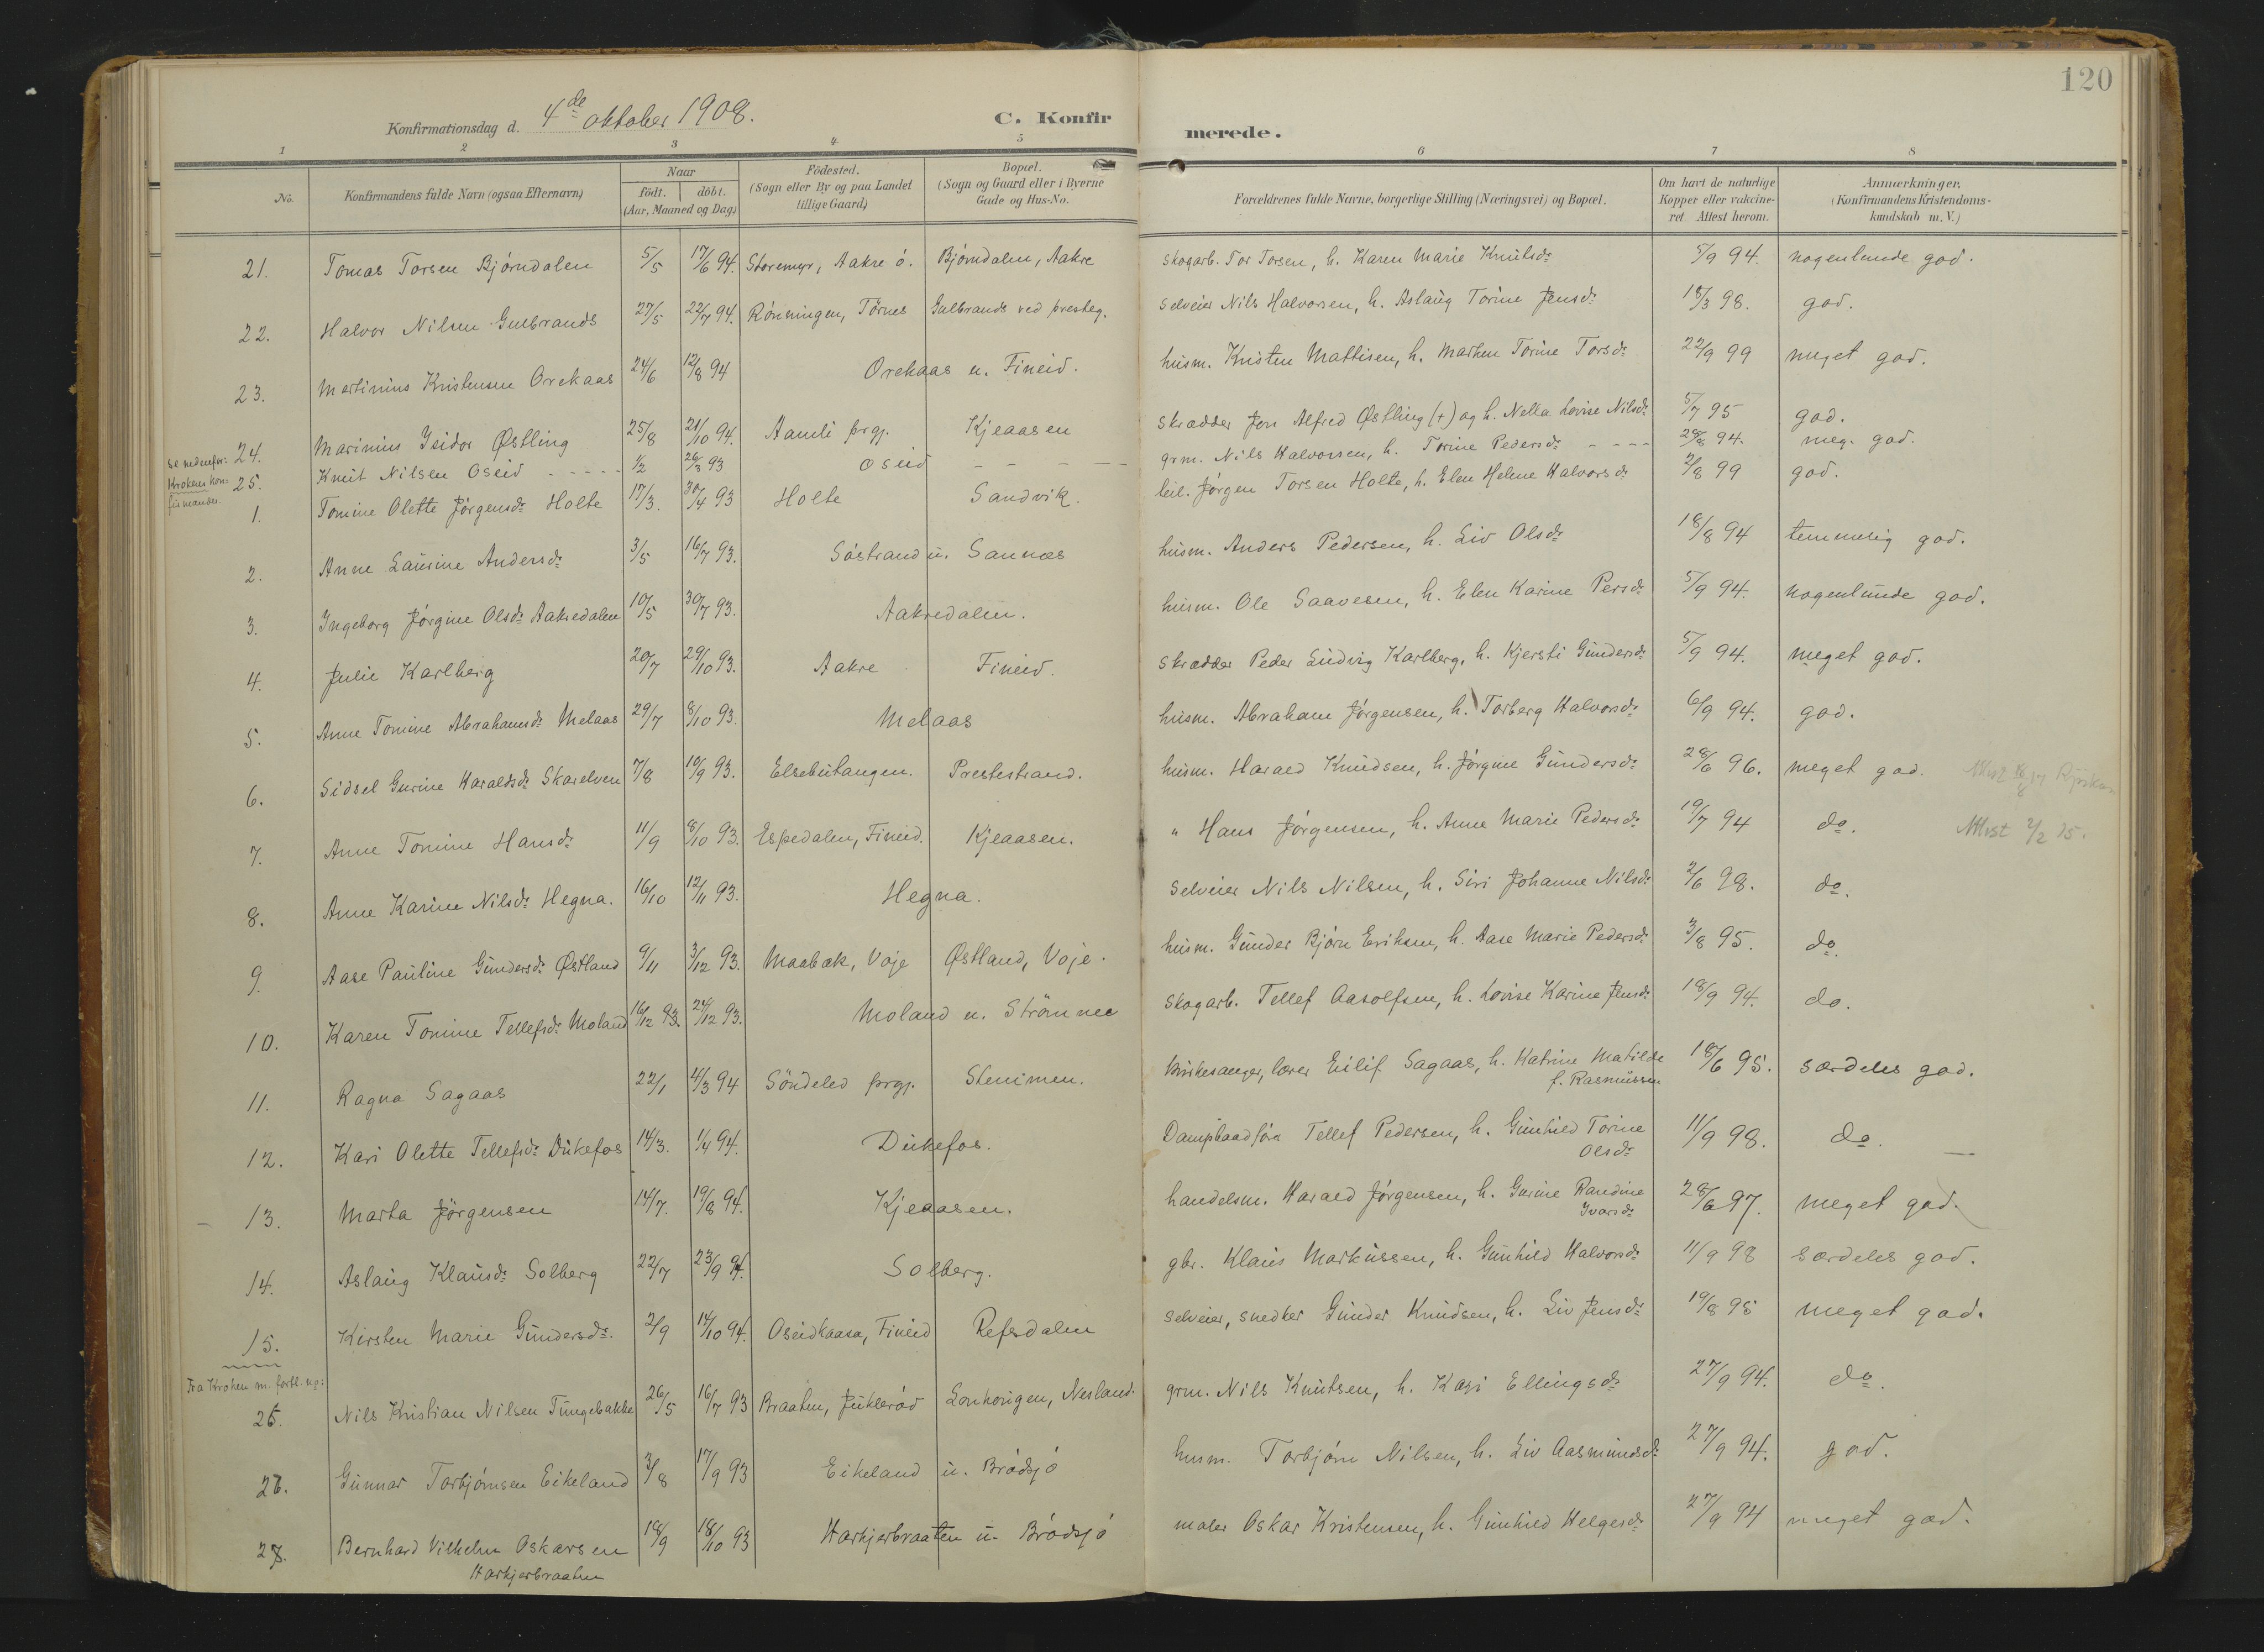 120
Konfirmationsdag d. 4de oktober 1908.
C. Konfirmerede.
1 2 3 4 5 6 7 8
No. Konfirmandens fulde Navn (ogsaa Efternavn) Naar födt. döbt. (Aar, Maaned og Dag) Födested. (Sogn eller By og paa Landet tillige Gaard) Bopæl. (Sogn og Gaard eller i Byerne Gade og Hus-No. Forældrenes fulde Navne, borgerlige Stilling (Næringsvei) og Bopæl. Om havt de naturlige Kopper eller vaccineret. Attest herom. Anmerkninger. (Konfirmandens Kristendomskundskab m. V.)
21. Tomas Torsen Bjørndalen 5/5 17/6 94. Storemyr, Aakre ö. Bjørndalen, Aakre skogarb. Tor Torsen, h. Karen Marie Knutsdr 5/9 94. nogenlunde god.
22. Halvor Nilsen Gulbrands 27/5 22/7 94. Rönningen, Törnes Gulbrands ved presteg. selveier Nils Halvorsen, h. Aslaug Torine Jensdr 18/3 98. god.
23. Martinius Kristensen Orekaas 24/6 12/8 94 Orekaas u. Fineid. husm. Kristen Mattisen, h. Marthen Torine Torsdr 22/9 99 meget god.
24. Marinius Isidor Østling 25/8 21/10 94. Aamli prgj. Kjeaasen skrædder Jon Alfred Østling (+) og h. Nella Lovise Nilsdr 5/7 95 god.
se nedenfor:
25. Knut Nilsen Oseid - - - - - 1/2 26/3 93 Oseid - - - - - grm. Nils Halvorsen, h. Torine Pedersdr - - - - 28/8 94. meg. god.
Kroken konfirmander.
1. Tomine Olette Jørgensdr Holte 17/3. 30/4 93 Holte Sandvik. leil. Jørgen Torsen Holte, h. Elen Helene Halvorsdr 2/8 99 god.
2. Anne Laurine Andersdr 3/5 16/7 93. Söstrand u. Sannæs husm. Anders Pedersen, h. Liv Olsdr 18/8 94 temmelig god.
3. Ingeborg Jørgine Olsdr Aakredalen 10/5 30/7 93. Aakredalen. husm. Ole Saavesen, h. Elen Karine Persdr 5/9 94. nogenlunde god.
4. Julie Karlberg 20/7 29/10 93. Aakre Fineid. skrædder Peder Ludvig Karlberg, h. Kjersti Gundersdr 5/9 94. meget god.
5. Anne Tomine Abrahamsdr Melaas 29/7 8/10 93. Melaas husm. Abraham Jørgensen, h. Torberg Halvorsdr 6/9 94. god.
6. Sidsel Gurine Haraldsdr Skarelven 7/8 10/9 93. Elsebutangen. Prestestrand. husm. Harald Knudsen, h. Jørgine Gundersdr 28/6 96. meget god.
7. Anne Tomine Hansdr 11/9 8/10 93. Espedalen, Fineid. Kjeaasen. " Hans Jørgensen, h. Anne Marie Pedersdr 19/7 94 do. Attest 2/2 15.
8. Anne Karine Nilsdr Hegna. 16/10 12/11 93. Hegna. selveier Nils Nilsen, h. Siri Johanne Nilsdr 2/6 98. do.
9. Aase Pauline Gundersdr Østland 9/11 3/12 93. Maabæk, Voje Østland, Voje. husm. Gunder Bjørn Eriksen, h. Aase Marie Pedersdr 3/8 95. do.
10. Karen Tomine Tellefsdr Moland 16/12 93. 24/12 93. Moland u. Strömnæs skogarb. Tellef Aasolfsen, h. Lovise Karine Jensdr 18/9 94. do.
11. Ragna Sagaas 22/1 4/3 94 Söndeled prgj. Stenimen. Kirkesanger, lærer Eilif Sagaas, h. Katrine Matilde f. Rasmussen 18/6 95. særdeles god.
12. Kari Olette Tellefsdr Dukefos 14/3. 1/4 94. Dukefos. Dampbaadför. Tellef Pedersen, h. Gunhild Torine Olsdr 11/9 98. do.
13. Marta Jörgensen 14/7. 19/8 94. Kjeaasen. handelsm. Harald Jørgensen, h. Gurine Randine Ivarsdr 28/6 97. meget god.
14. Aslaug Klausdr Solberg 22/7 23/9 94. Solberg. gbr. Klaus Markussen, h. Gunhild Halvorsdr 11/9 98 særdeles god.
15. Kirsten Marie Gundersdr. 2/9 14/10 94. Oseidkaasa, Fineid Refsdalen selveier, snedker Gunder Knudsen, h. Liv Jensdr 19/8 95 meget god.
Fra Kroken m. fortl. no:
26. Nils Kristian Nilsen Tungebakke 26/5 16/7 93 Braaten, Juklerød Lonhorigen, Nesland. grm. Nils Knutsen, h. Kari Ellingsdr 27/9 94. do.
27. Gunnar Torbjørnsen Eikeland 3/8 17/9 93 Eikeland u. Brødsjø husm. Torbjørn Nilsen, h. Liv Aasmundsdr 27/9 94. god.
28. Bernhard Vilhelm Oskarsen Harkjerbraaten 18/9 18/10 93 Harkjerbraaten u. Brødsjø maler Oskar Kristensen, h. Gunhild Helgesdr 27/9 94 meget god.